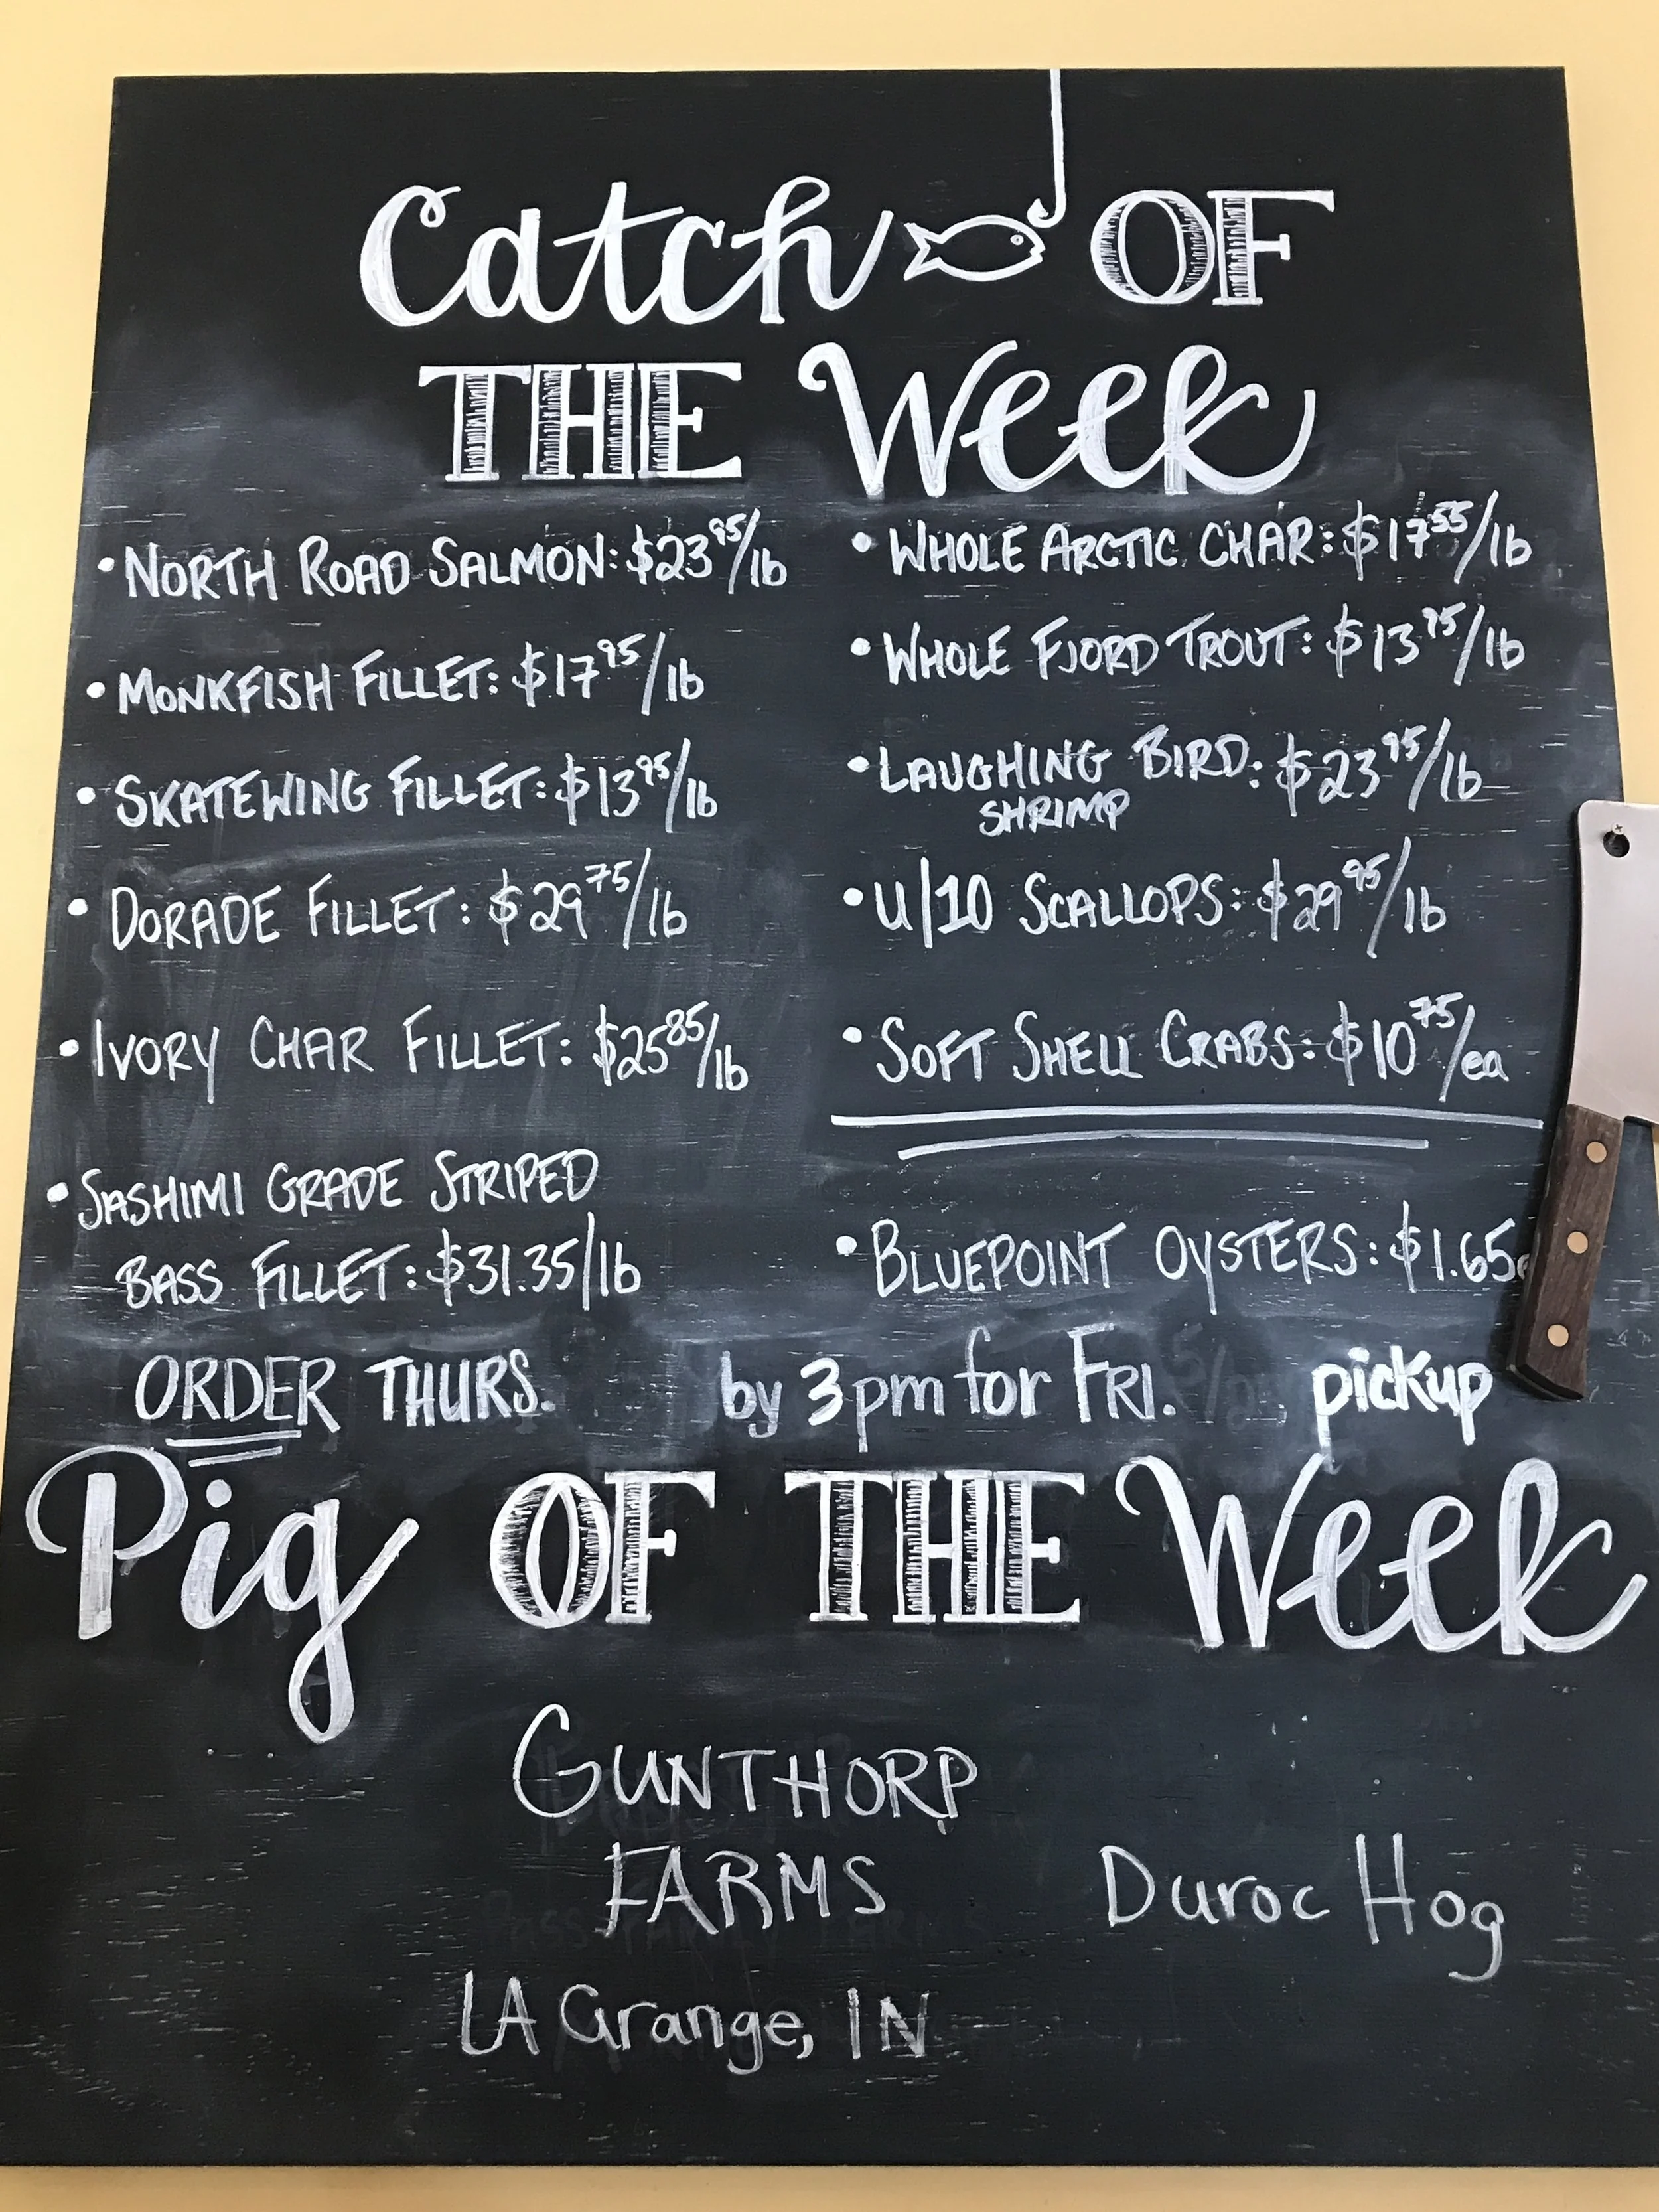 Catch OF
THE Week
• NORTH ROAD SALMON: $23 95/lb
• MONKFISH FILLET: $17 95/lb
• SKATEWING FILLET: $13 95/lb
• DORADE FILLET: $29 75/lb
• IVORY CHAR FILLET: $25 85/lb
• SASHIMI GRADE STRIPED
BASS FILLET: $31.35/lb
• WHOLE ARCTIC CHAR: $17 55/lb
• WHOLE FJORD TROUT: $13 75/lb
• LAUGHING BIRD: $23 95/lb
SHRIMP
• U/10 SCALLOPS: $29 95/lb
• SOFT SHELL CRABS: $10 75/ea
• BLUEPOINT OYSTERS: $1.65
ORDER THURS. by 3pm for FRI. pickup
Pig OF THE Week
GUNTHORP
FARMS
Duroc Hog
LA Grange, IN